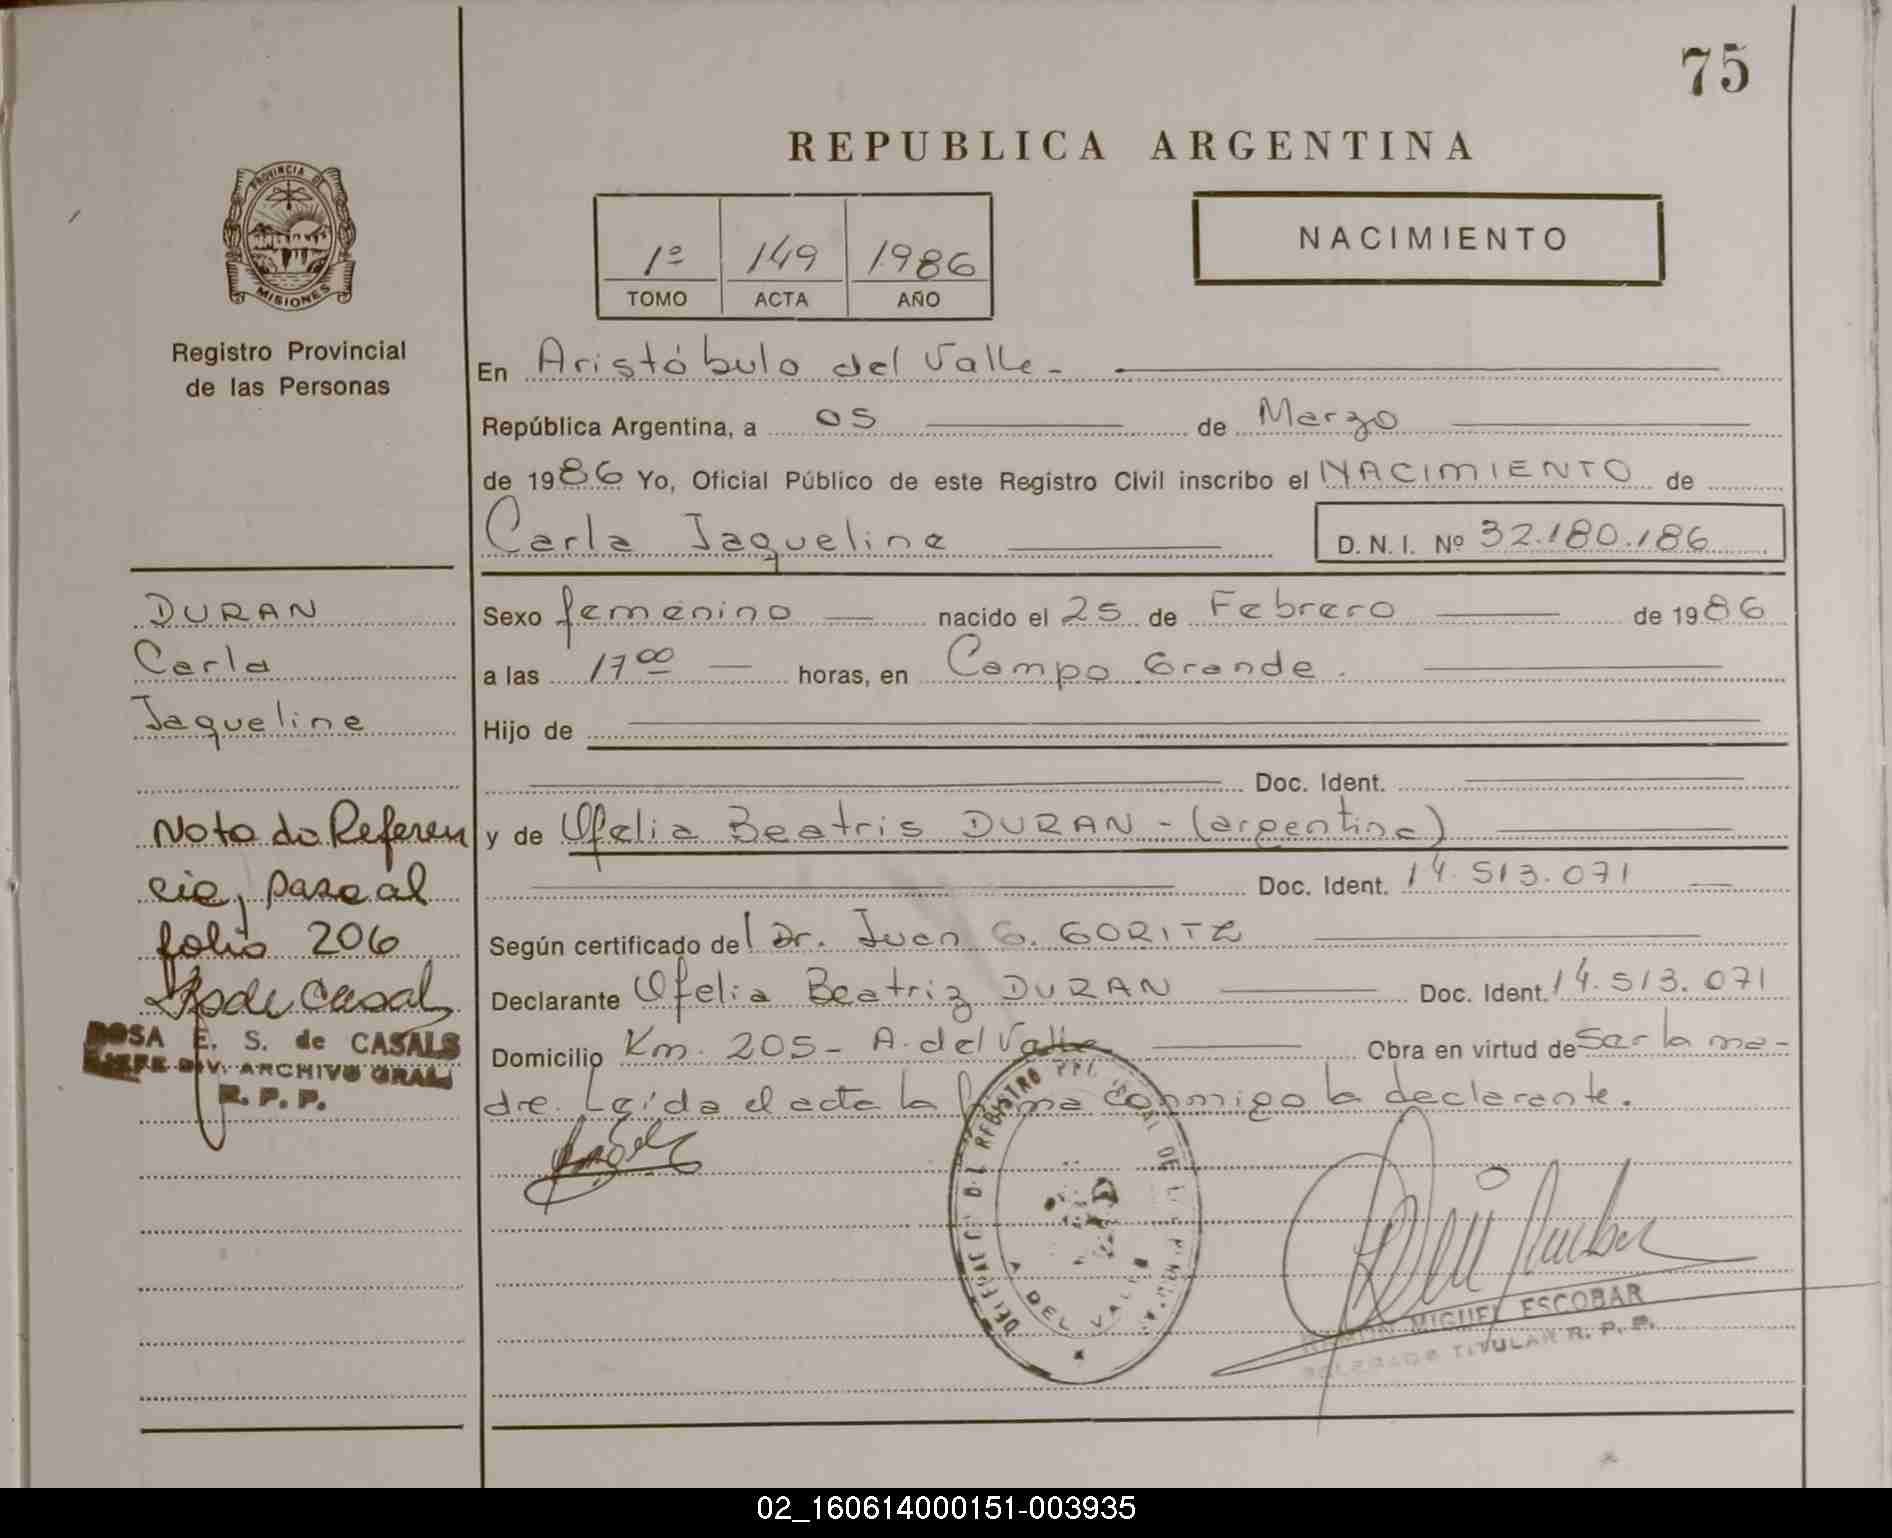 75
REPUBLICA ARGENTINA
PROVINCIA DE
MISIONES
Registro Provincial
de las Personas
1º 149 1986
TOMO ACTA AÑO
NACIMIENTO
En Aristóbulo del Valle -
República Argentina, a 05 de Marzo
de 1986 Yo, Oficial Público de este Registro Civil inscribo el NACIMIENTO de
Carla Jaqueline
D. N. I. Nº 32.180.186
DURAN
Carla
Jaqueline
Sexo femenino nacido el 25 de Febrero de 1986
a las 17 00 horas, en Campo Grande.
Hijo de
Doc. Ident.
y de Ofelia Beatris DURAN - (argentina)
Doc. Ident. 14.513.071
Según certificado del Dr. Juan G. GORITZ
Declarante Ofelia Beatriz DURAN Doc. Ident. 14.513.071
Domicilio Km. 205 - A. del Valle Obra en virtud de ser la ma-
dre. Leída el acta la firma conmigo la declarante.
Nota de Referen
cia, pase al
folio 206
ROSA E. S. de CASALS
JEFE DIV. ARCHIVO GRAL
R. P. P.
A. DEL VALLE
RAMON MIGUEL ESCOBAR
DELEGADO TITULAR R. P. P.
02_160614000151-003935